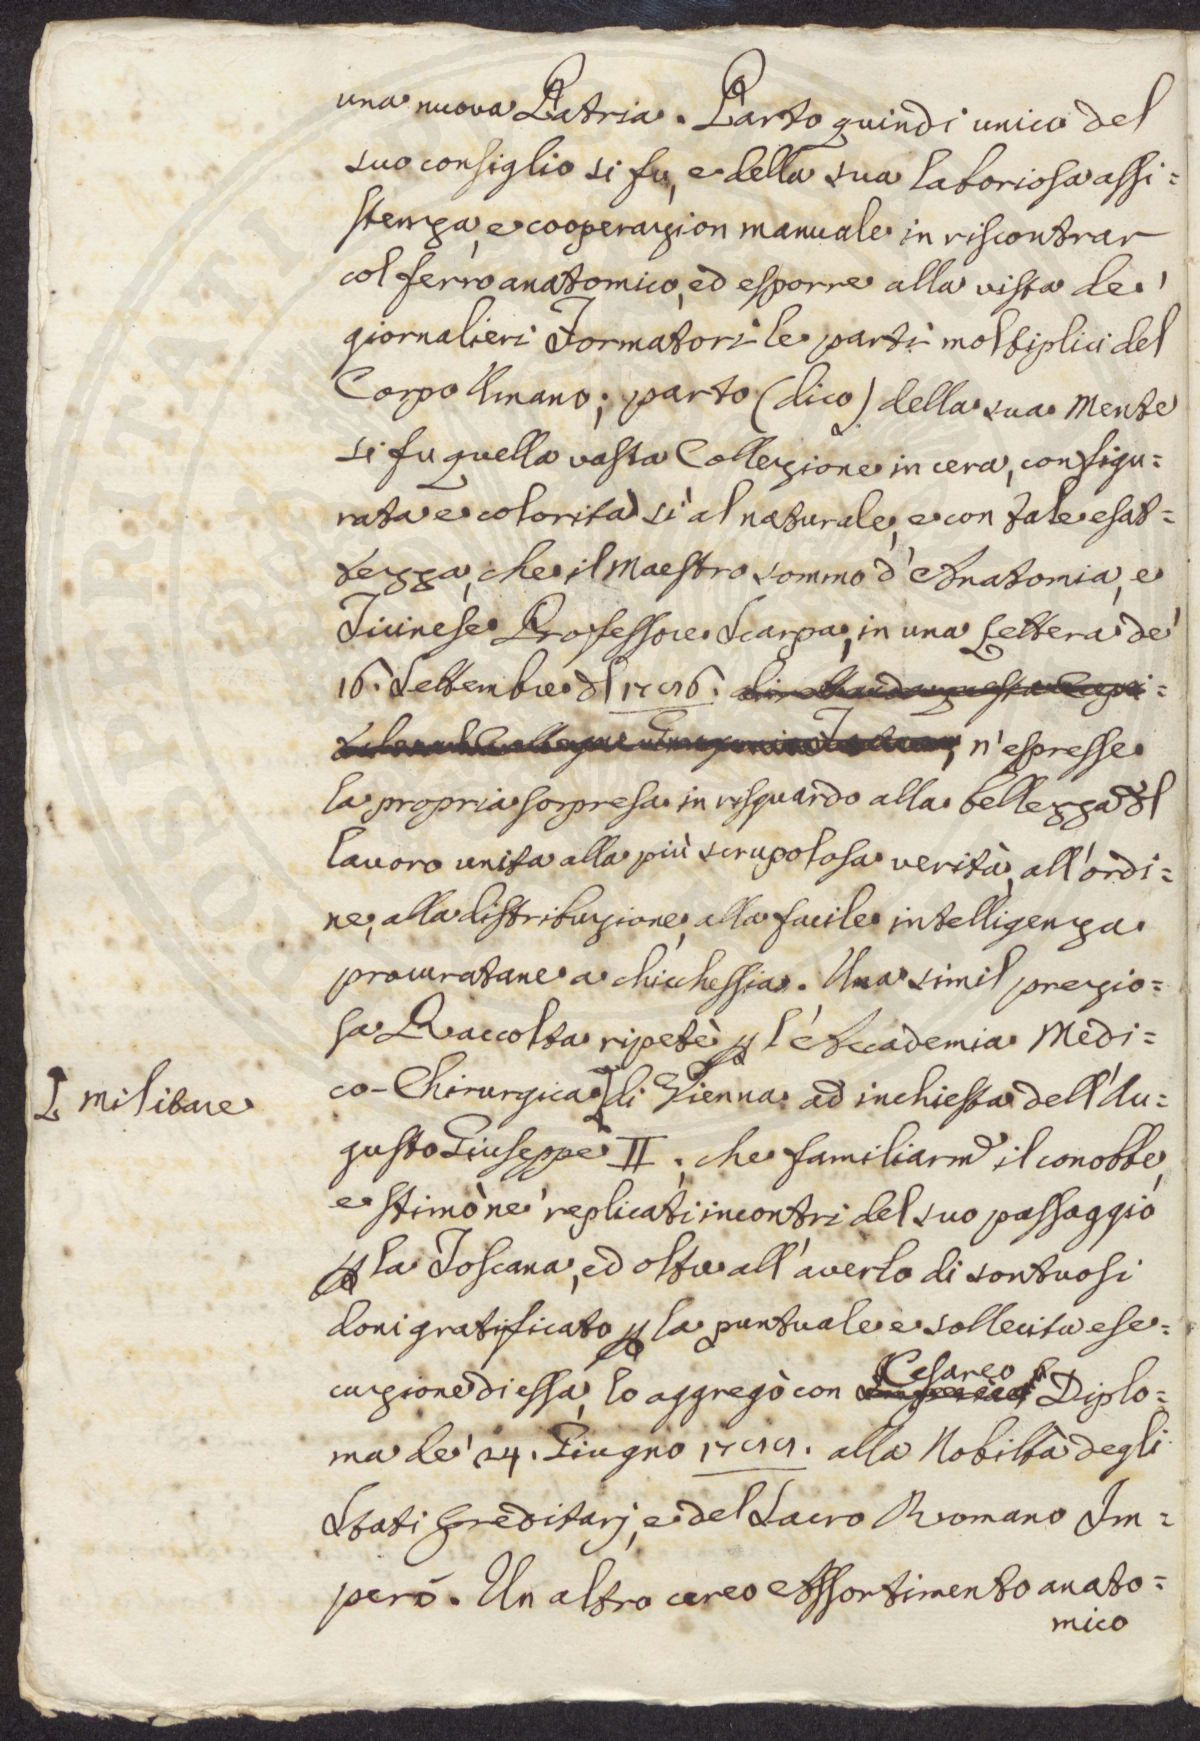 una nuova Patria. Parto quindi unico del
suo consiglio si fu, e della sua laboriosa assi=
stenza, e cooperazion manuale in riscontrar
col ferro anatomico, ed esporre alla vista de'
giornalieri Formatori le parti moltiplici del
Corpo Umano; parto (dico) della sua Mente
si fu quella vasta Collezione in cera, configu=
rata e colorita sì al naturale, e con tale esat=
tezza, che il Maestro sommo d'Anatomia, e
Ticinese Professore Scarpa, in una Lettera de'
16. Settembre del 1786. =
, n'espresse
la propria sorpresa in risguardo alla bellezza del
lavoro unita alla più scrupolosa verità, all'ordi=
ne, alla distribuzione, alla facile intelligenza
procuratane a chicchessia. Una simil prezio=
sa Raccolta ripetè p l'Accademia Medi=
co-Chirurgica [di Vienna ad inchiesta dell'Au=
[ militare
gusto Giuseppe II, che familiarmᵉ il conobbe,
e stimò ne' replicati incontri del suo passaggio
p la Toscana, ed oltre all'averlo di sontuosi
doni gratificato p la puntuale e sollecita ese=
cuzione di essa, lo aggregò con Cesareo Diplo=
ma de' 24. Giugno alla Nobiltà degli
Stati Ereditarj, e del Sacro Romano Im=
pero. Un altro cereo Assortimento anato=
mico